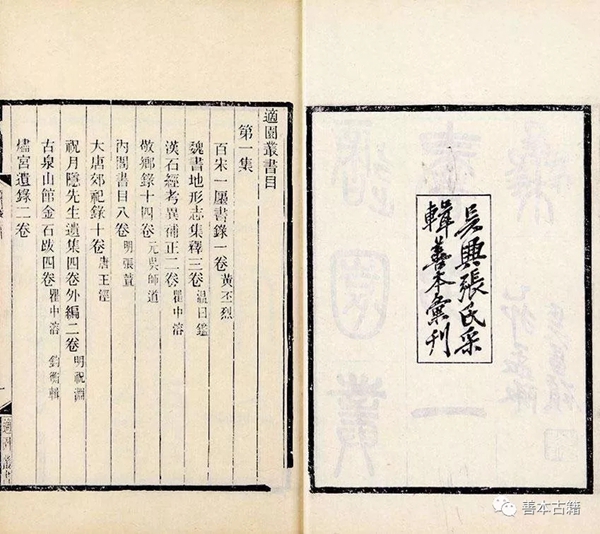 吳興張氏采
輯善本彙刊
適園叢書目
第一集
百宋一廛書錄一卷 黃丕烈
魏書地形志集釋三卷 溫曰鑑
漢石經考異補正二卷 瞿中溶
敬鄉錄十四卷 元吳師道
內閣書目八卷 明張萱
大唐郊祀錄十卷 唐王涇
祝月隱先生遺集四卷外編二卷 明祝淵
古泉山館金石跋四卷 瞿中溶
燼宮遺錄二卷
適園叢書
善本古籍